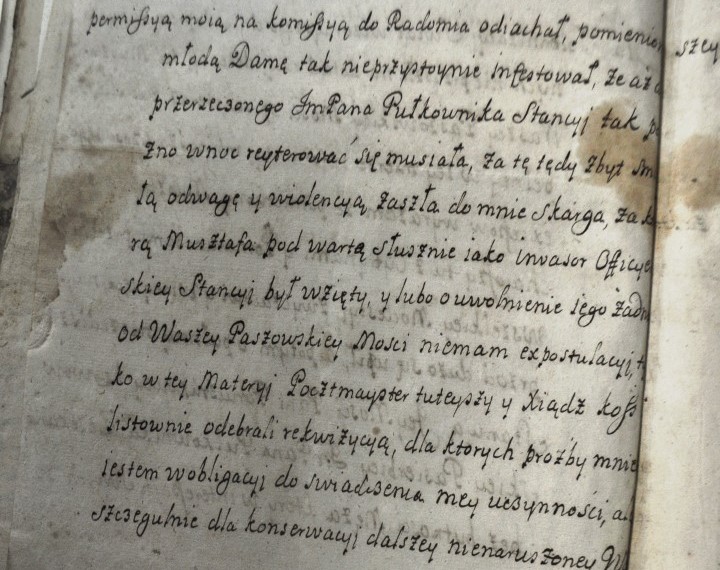 permissyą moią na komissyą do Radomia odiachał, pomienio
szey
młodą Damę tak nieprzystoynie infestował, że aż
przerzeczonego JmPana Pułkownika Stancyj tak
zno wnoc reyterować się musiała, za tę tędy zbyt sm
łą odwagę y wiolencyą zaszła do mnie skarga, za k
rą Musztafa pod wartę słusznie iako invasor Officye
skiey Stancyj był wzięty, y lubo o uwolnienie iego żadn
od Waszey Paszowskiey Mosci niemam expostulacyj, t
ko w tey Materyj Pocztmayster tuteyszy y Xiądz koss
listownie odebrali rekwizycyą, dla ktorych proźby mnie
iestem wobligacyj do swiadczenia mey uczynności, a
szczegulnie dla konserwacyj dalszey nienaruszoney